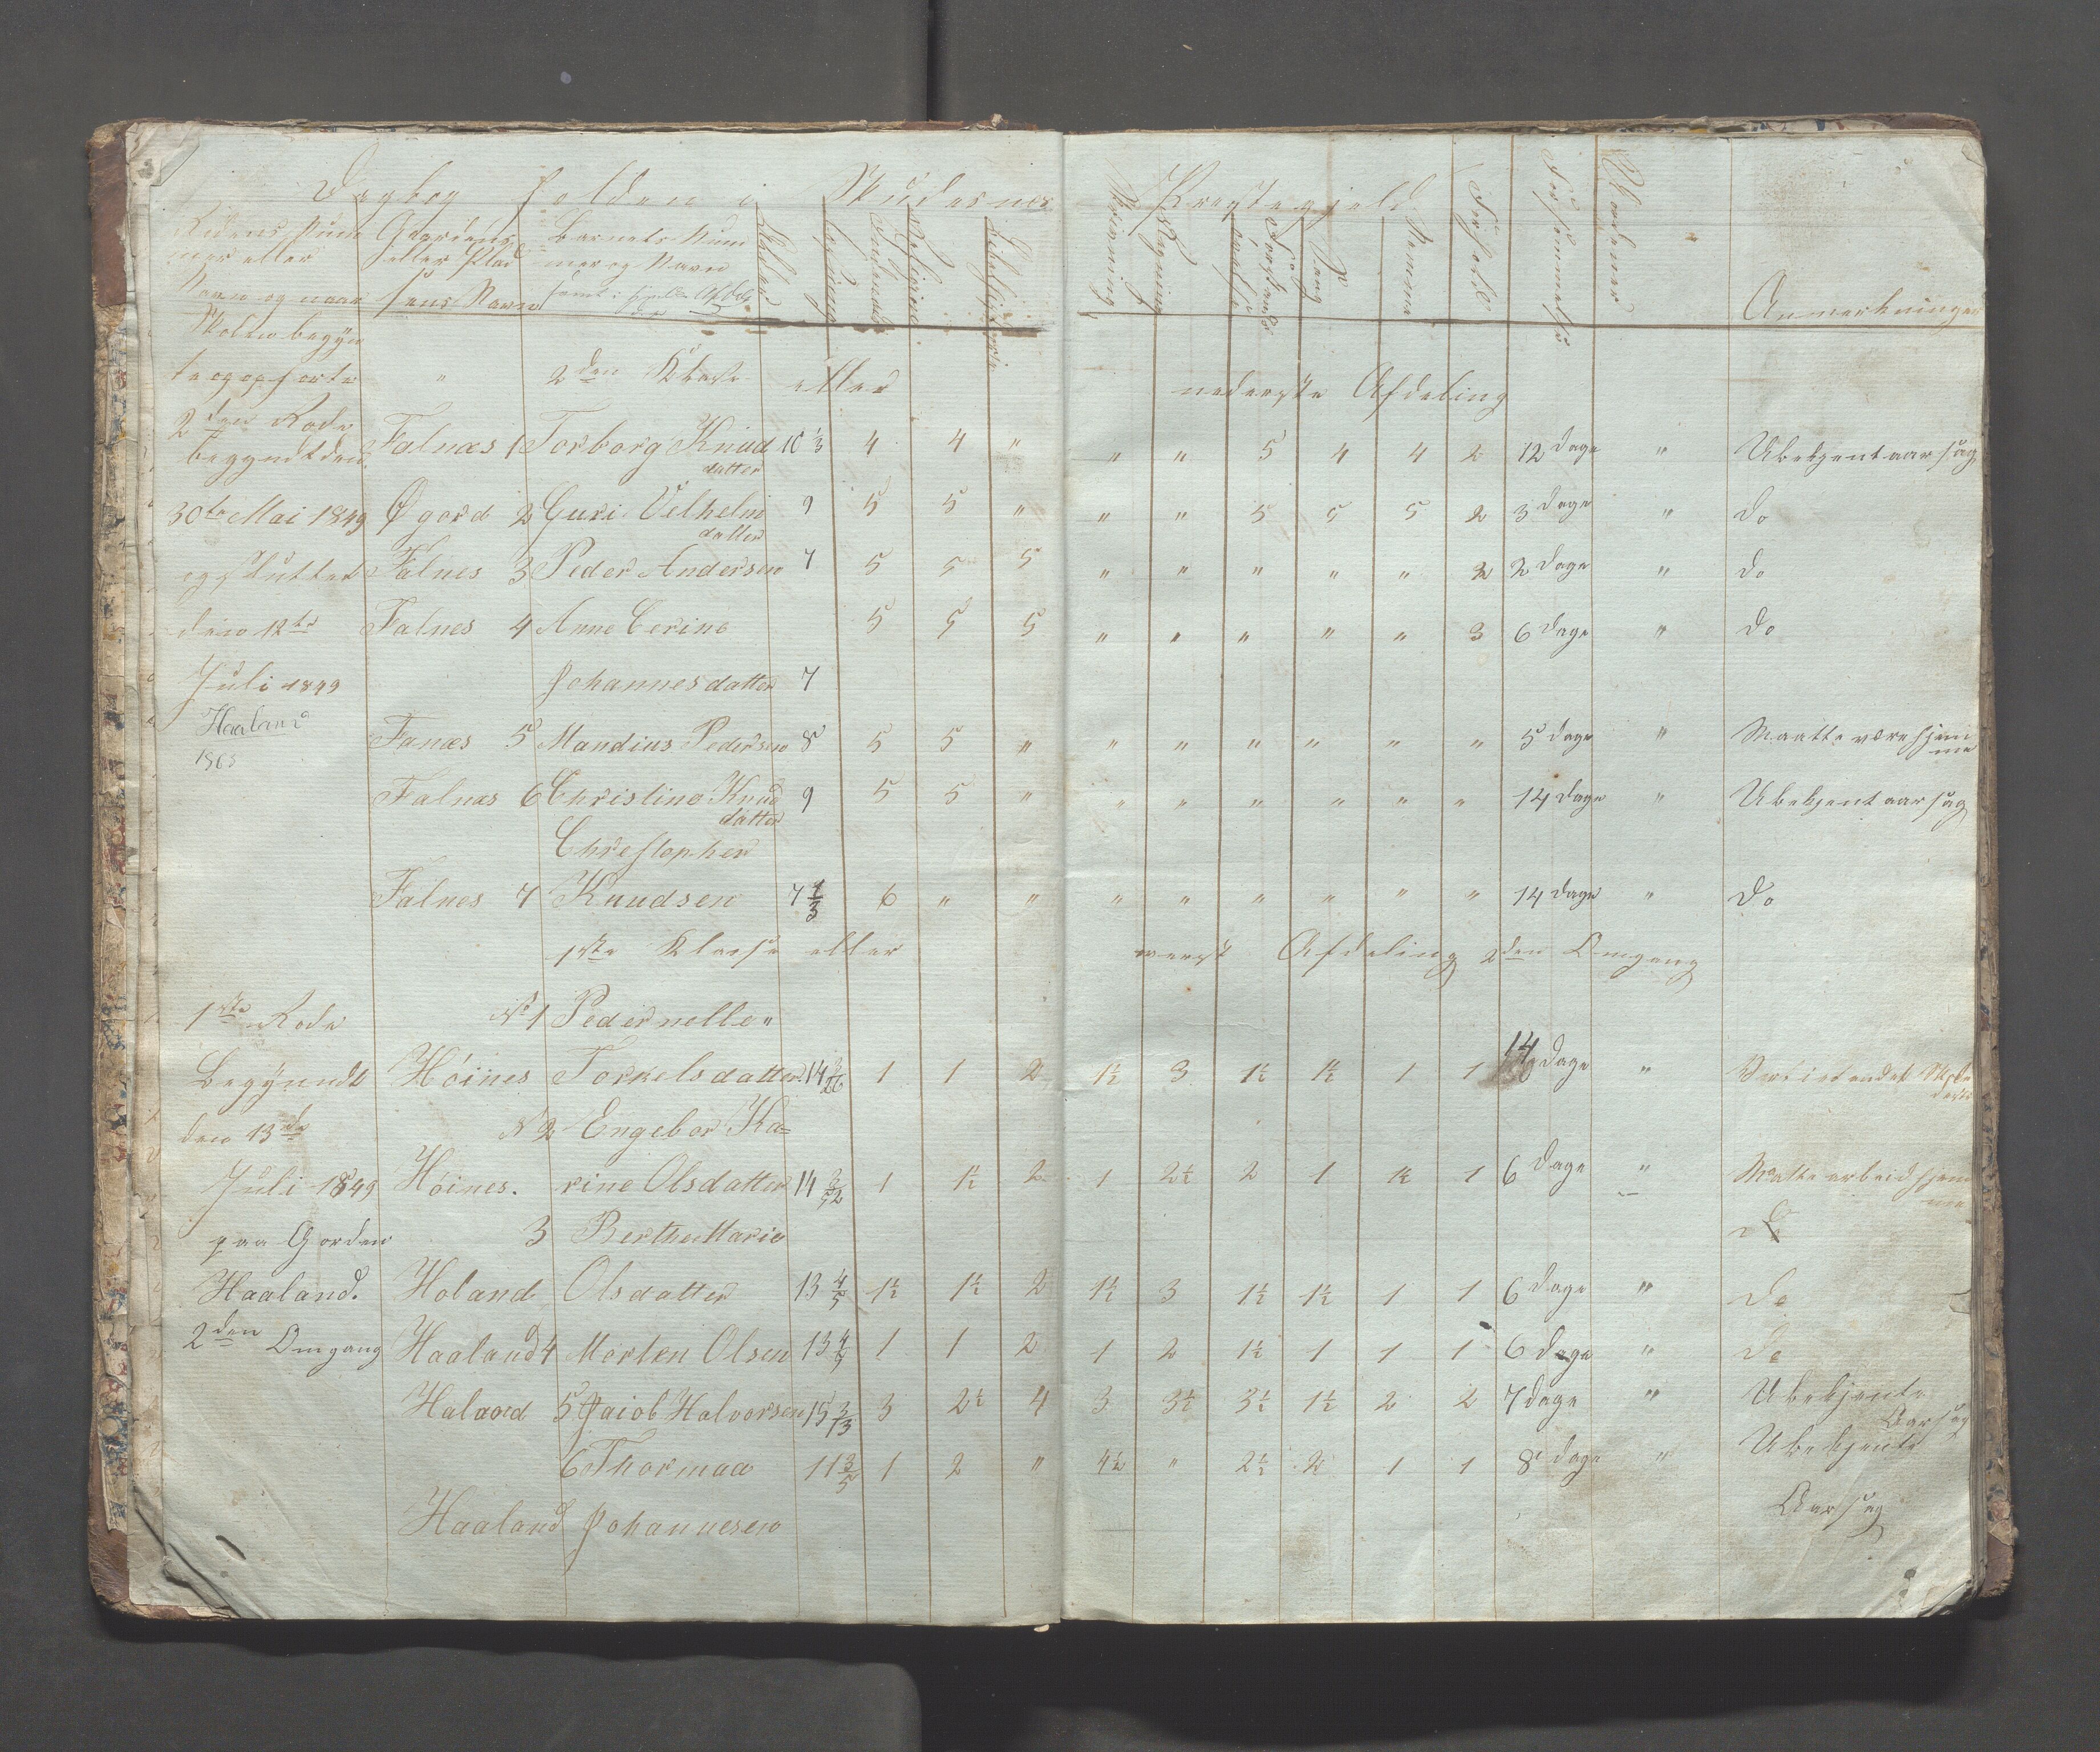 Dagbog holden i Skudesnes Prestegjeld
Rodens Num Gaardens Barnets Num Alder Læsning Religion Skrivning Regning Sang Nemme Forhold Forsømmelse
mer eller eller Plad mer og Navn
Navn og naar sens Navn samt i hvilken Afdeling Anmerkninger
Skolen begyn
te og ophørte " 2den Klasse eller nederste Afdeling
2den Rode
begyndt den Falnæs 1 Torborg Knud 10 1/3 4 4 " " " 5 4 4 2 12 dage " Ubekjent aarsag
datter
30te Mai 1849 Øgord 2 Guri Vilhelm 9 5 5 " " " 5 5 5 2 3 dage " do
datter
og sluttet Falnes 3 Peder Andersen 7 5 5 5 " " " " " 2 2 dage " do
den 12te Falnes 4 Anne Cerine 5 5 5 " " " " " 3 6 dage " do
Juli 1849 Johannesdatter 7
Haaland Fanæs 5 Mandius Pedersen 8 5 5 " " " " " " " 5 dage " Maatte være hjem
1865 me
Falnæs 6 Christine Knud 9 5 5 " " " " " " " 14 dage " Ubekjent aarsag
datter
Chrestopher
Falnes 7 Knudsen 7 1/3 6 " " " " " " " " 14 dage " do
1ste Klasse eller øverst Afdeling 2den Omgang
1ste Rode No 1 Pedernelle "
Begyndt Höines Torkelsdatter 14 1 1 2 1½ 3 1½ 1½ 1 1 14 dage "
den 13de N 2 Engebor Ka=
Juli 1849 Höines. rine Olsdatter 14 1 1½ 2 1 2½ 2 1 1½ 1 6 dage " Matte arbeid hjem
me
paa Gorden 3 Berthe Marie do
Haaland. Holand Olsdatter 13 4/5 1½ 1½ 2 1½ 3 1½ 1½ 1 1 6 dage " do
2den Omgang Haaland 4 Morten Olsen 13 1 1 2 1 2 1½ 1 1 1 6 dage " do
Halaand 5 Jaiob Halvorsen 15 3 2½ 4 3 3½ 3½ 1½ 2 2 7 dage " Ubekjente
Aarsag
6 Thormaa 11 3/5 1 2 " 4½ " 2½ 2 1 1 8 dage " Ubekjente
Haaland Johannesen Aarsag